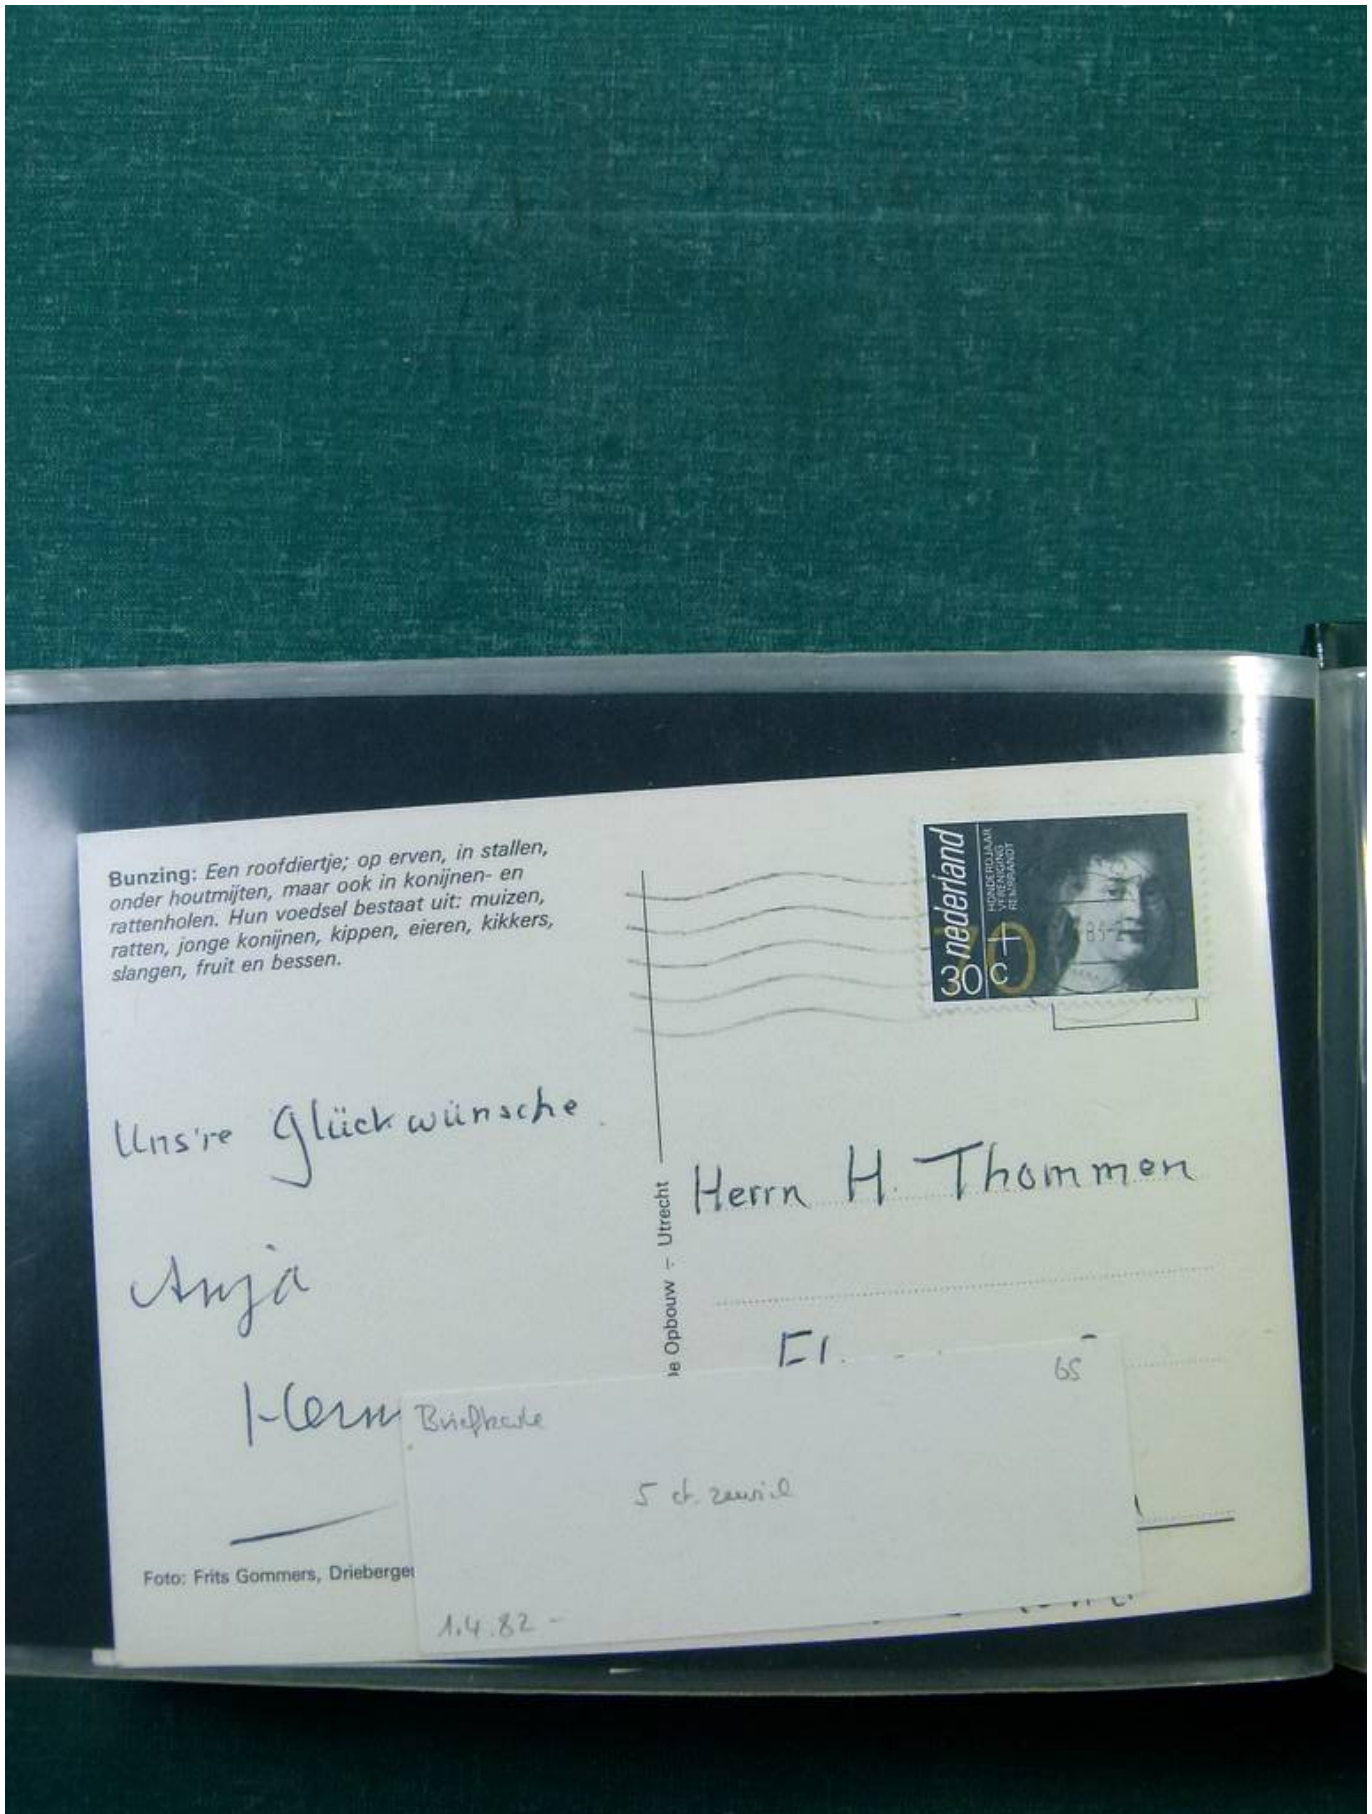 Bunzing: Een roofdiertje; op erven, in stallen,
onder houtmijten, maar ook in konijnen- en
rattenholen. Hun voedsel bestaat uit: muizen,
ratten, jonge konijnen, kippen, eieren, kikkers,
slangen, fruit en bessen.
nederland
HONDERDJAAR
VERENIGING
REMBRANDT
30 c
+
70
Uns're Glückwünsche
Anja
Herrn H. Thommen
le Opbouw – Utrecht
Briefkarte
65
5 ct. zuviel
1.4.82 -
Foto: Frits Gommers, Drieberge